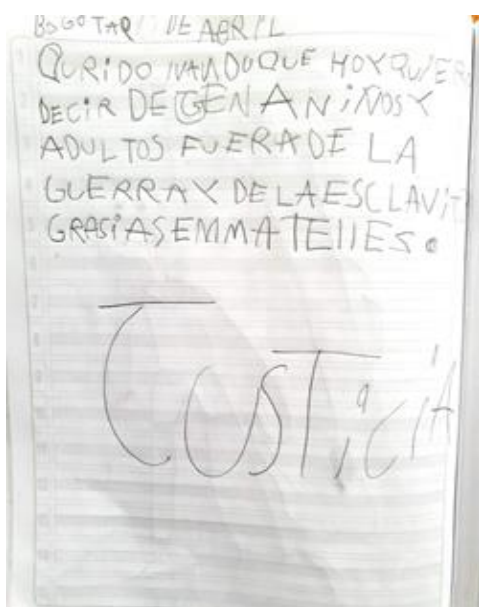 BOGOTA DE ABRIL
QURIDO IVAN DUQUE HOY QUIER
DECIR DEGEN A NiÑOS Y
ADULTOS FUERA DE LA
GUERRA Y DE LA ESCLAVIT
GRASiAS EMMA TEllES.
JUSTiCiA